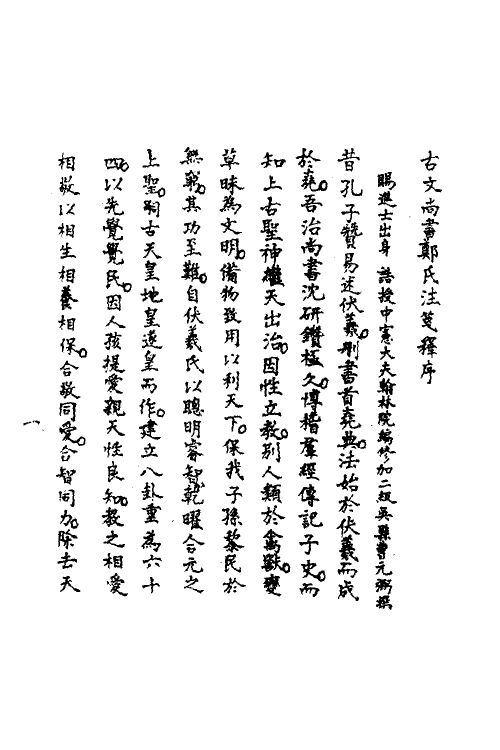 古文尚書鄭氏注箋釋序
賜進士出身 誥授中憲大夫翰林院編修加二級吳縣曹元弼撰
昔孔子贊易述伏羲。刪書首堯典。法始於伏羲而成
於堯。吾治尚書沈研鑽極久。博稽羣經傳記子史。而
知上古聖神繼天出治。因性立教。別人類於禽獸。變
草昧為文明。備物致用以利天下。保我子孫黎民於
無窮。其功至難。自伏羲氏以聰明睿智乾曜合元之
上聖。嗣古天皇地皇遂皇而作。建立八卦重為六十
四。以先覺覺民。因人孩提愛親天性良知。教之相愛
相敬以相生相養相保。合敬同愛。合智同力。除去天
一